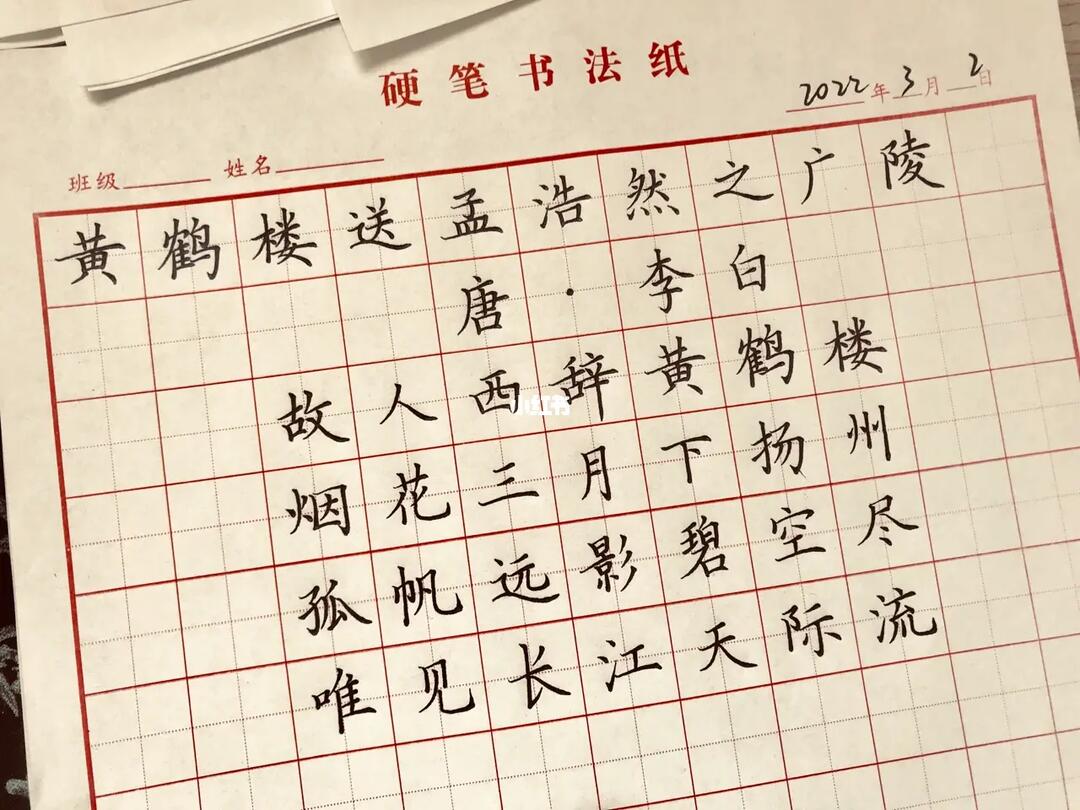 硬笔书法纸
2022年3月2日
班级 姓名
黄鹤楼送孟浩然之广陵
唐·李白
故人西辞黄鹤楼
小红书
烟花三月下扬州
孤帆远影碧空尽
唯见长江天际流